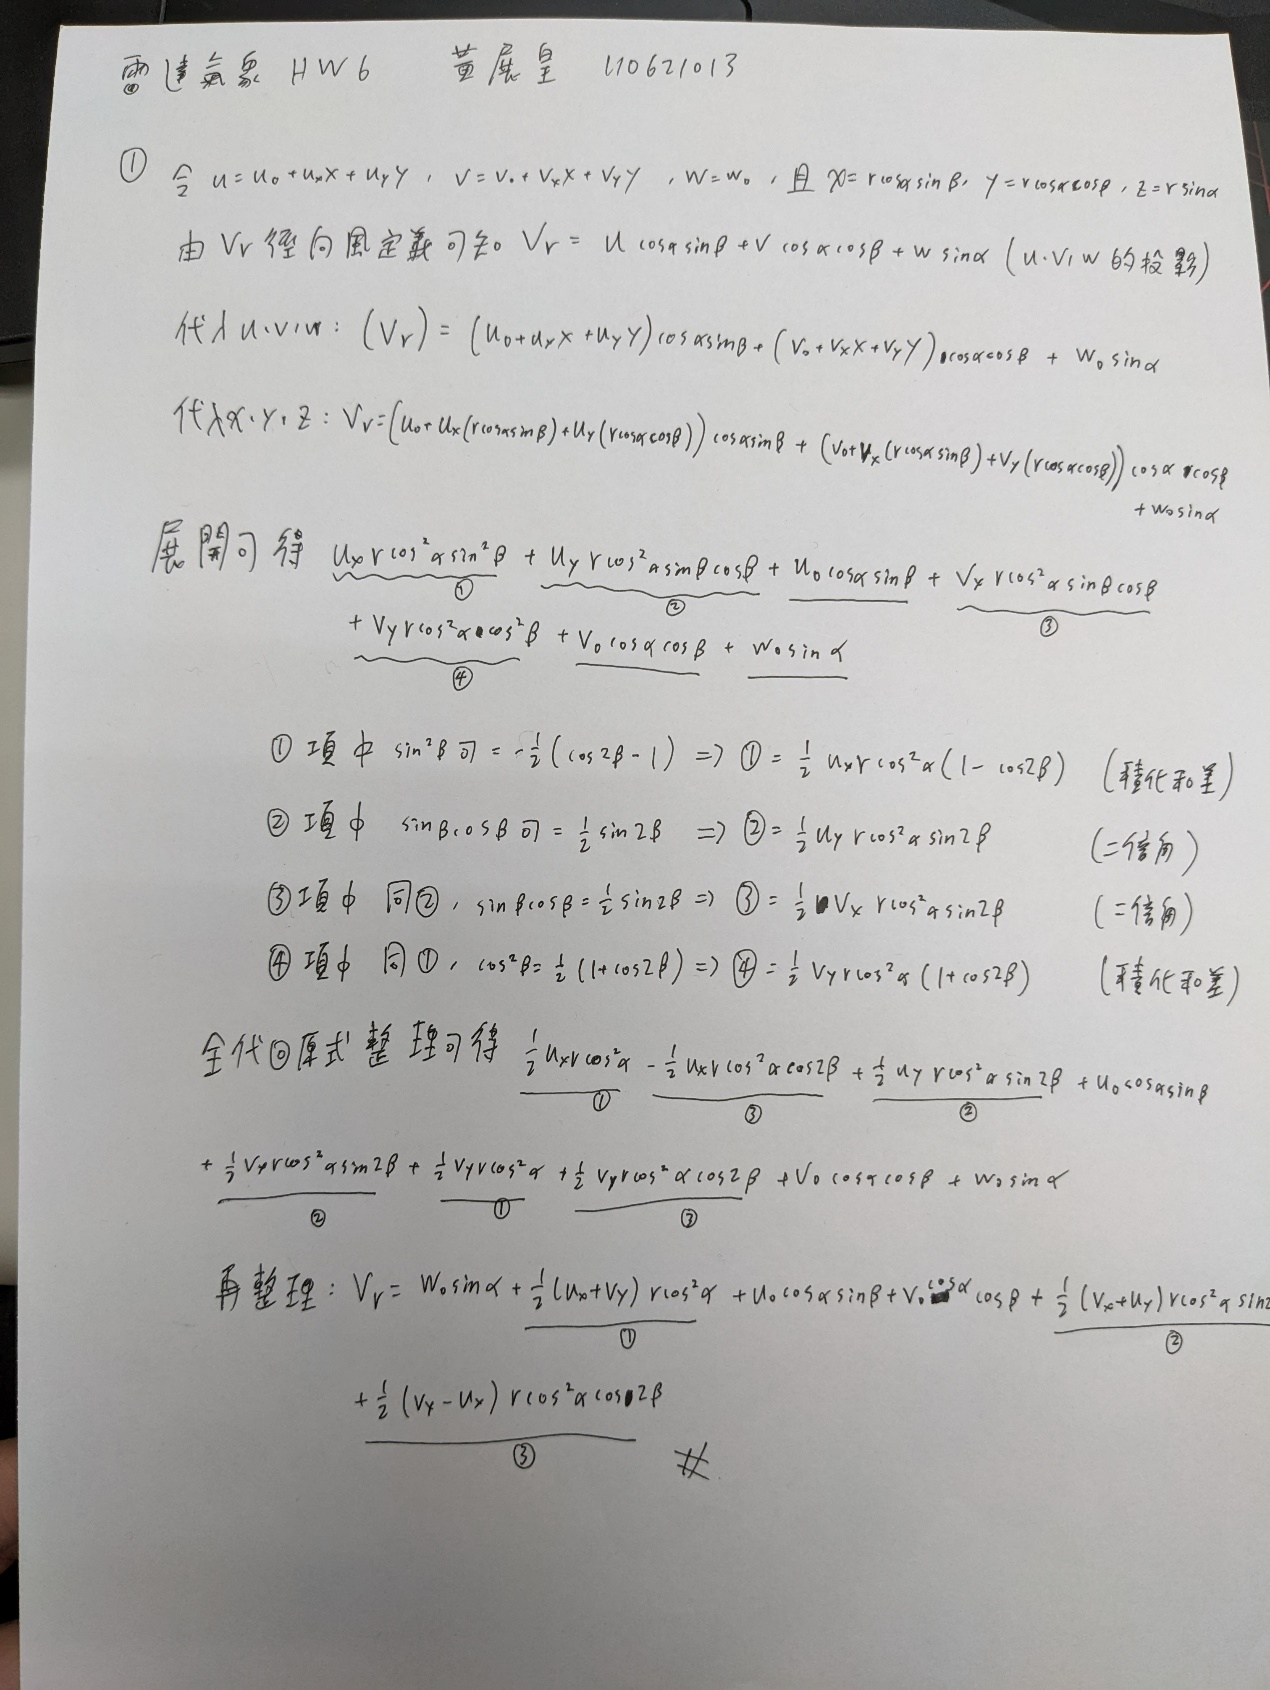 雷達氣象 HW6 黃展皇 110621013
① 令 u = u₀ + uₓx + u_y y , v = v₀ + vₓx + v_y y , w = w₀ , 且 x = rcosαsinβ, y = rcosαcosβ, z = r sinα
由 Vr 徑向風定義可知 Vr = u cosα sinβ + v cosα cosβ + w sinα (u、v、w 的投影)
代入 u、v、w : (Vr) = (u₀+uₓx+u_y y)cosαsinβ + (v₀+vₓx+v_y y)cosαcosβ + w₀ sinα
代入x、y、z : Vr = (u₀+uₓ(rcosαsinβ)+u_y(rcosαcosβ)) cosαsinβ + (v₀+vₓ(rcosαsinβ)+v_y(rcosαcosβ)) cosα cosβ
+ w₀sinα
展開可得 uₓrcos²αsin²β + u_y rcos²αsinβcosβ + u₀cosαsinβ + vₓ rcos²αsinβcosβ
① ② ③
+ v_y rcos²αcos²β + v₀cosαcosβ + w₀sinα
④
① 項中 sin²β 可 = -½(cos2β-1) => ① = ½ uₓrcos²α(1-cos2β) (積化和差)
② 項中 sinβcosβ 可 = ½ sin2β => ② = ½ u_y rcos²α sin2β (二倍角)
③ 項中 同②, sinβcosβ = ½ sin2β => ③ = ½ vₓ rcos²αsin2β (二倍角)
④ 項中 同①, cos²β = ½(1+cos2β) => ④ = ½ v_y rcos²α(1+cos2β) (積化和差)
全代回原式整理可得 ½uₓrcos²α - ½uₓrcos²αcos2β + ½u_y rcos²αsin2β + u₀cosαsinβ
① ③ ②
+ ½vₓrcos²αsin2β + ½v_y rcos²α + ½v_y rcos²αcos2β + v₀cosαcosβ + w₀sinα
② ① ③
再整理 : Vr = w₀sinα + ½(uₓ+v_y) rcos²α + u₀cosαsinβ + v₀cosα cosβ + ½(vₓ+u_y)rcos²α sin2
① ②
+ ½(v_y-uₓ) rcos²αcos2β
③ #